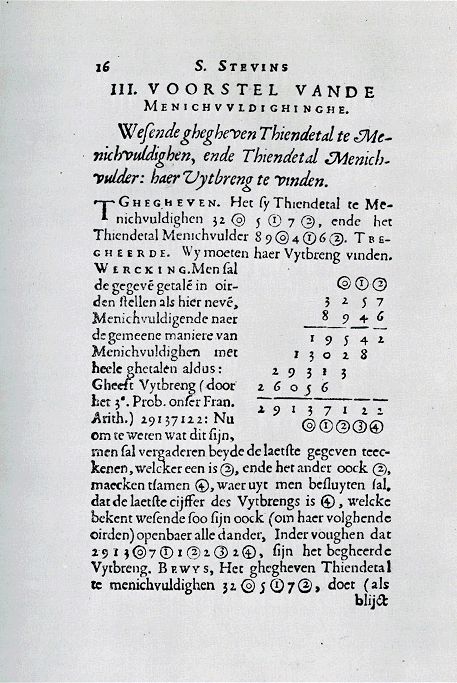 16 S. STEVINS
III. VOORSTEL VANDE
MENICHVVLDIGHINGHE.
Weſende ghegheven Thiendetal te Me-
nichvuldighen, ende Thiendetal Menich-
vulder: haer Vytbreng te vinden.
TGHEGHEVEN. Het ſy Thiendetal te Me-
nichvuldighen 32 ⓪ 5 ① 7 ②, ende het
Thiendetal Menichvulder 89 ⓪ 4 ① 6 ②. TBE-
GHEERDE. Wy moeten haer Vytbreng vinden.
WERCKING. Men ſal
de gegevē getalē in oir-
den ſtellen als hier nevē,
Menichvuldigende naer
de gemeene maniere van
Menichvuldighen met
heele ghetalen aldus:
Gheeft Vytbreng (door
het 3e. Prob. onſer Fran.
Arith.) 29137122: Nu
om te weten wat dit ſijn,
⓪ ① ②
3 2 5 7
8 9 4 6
1 9 5 4 2
1 3 0 2 8
2 9 3 1 3
2 6 0 5 6
2 9 1 3 7 1 2 2
⓪ ① ② ③ ④
men ſal vergaderen beyde de laetſte gegeven teec-
kenen, welcker een is ②, ende het ander oock ②,
maecken tſamen ④, waer uyt men beſluyten ſal,
dat de laetſte cijffer des Vytbrengs is ④, welcke
bekent weſende ſoo ſijn oock (om haer volghende
oirden) openbaer alle dander, Inder voughen dat
2913 ⓪ 7 ① 1 ② 2 ③ 2 ④, ſijn het begheerde
Vytbreng. BEWYS, Het ghegheven Thiendetal
te menichvuldighen 32 ⓪ 5 ① 7 ②, doet (als
blijct